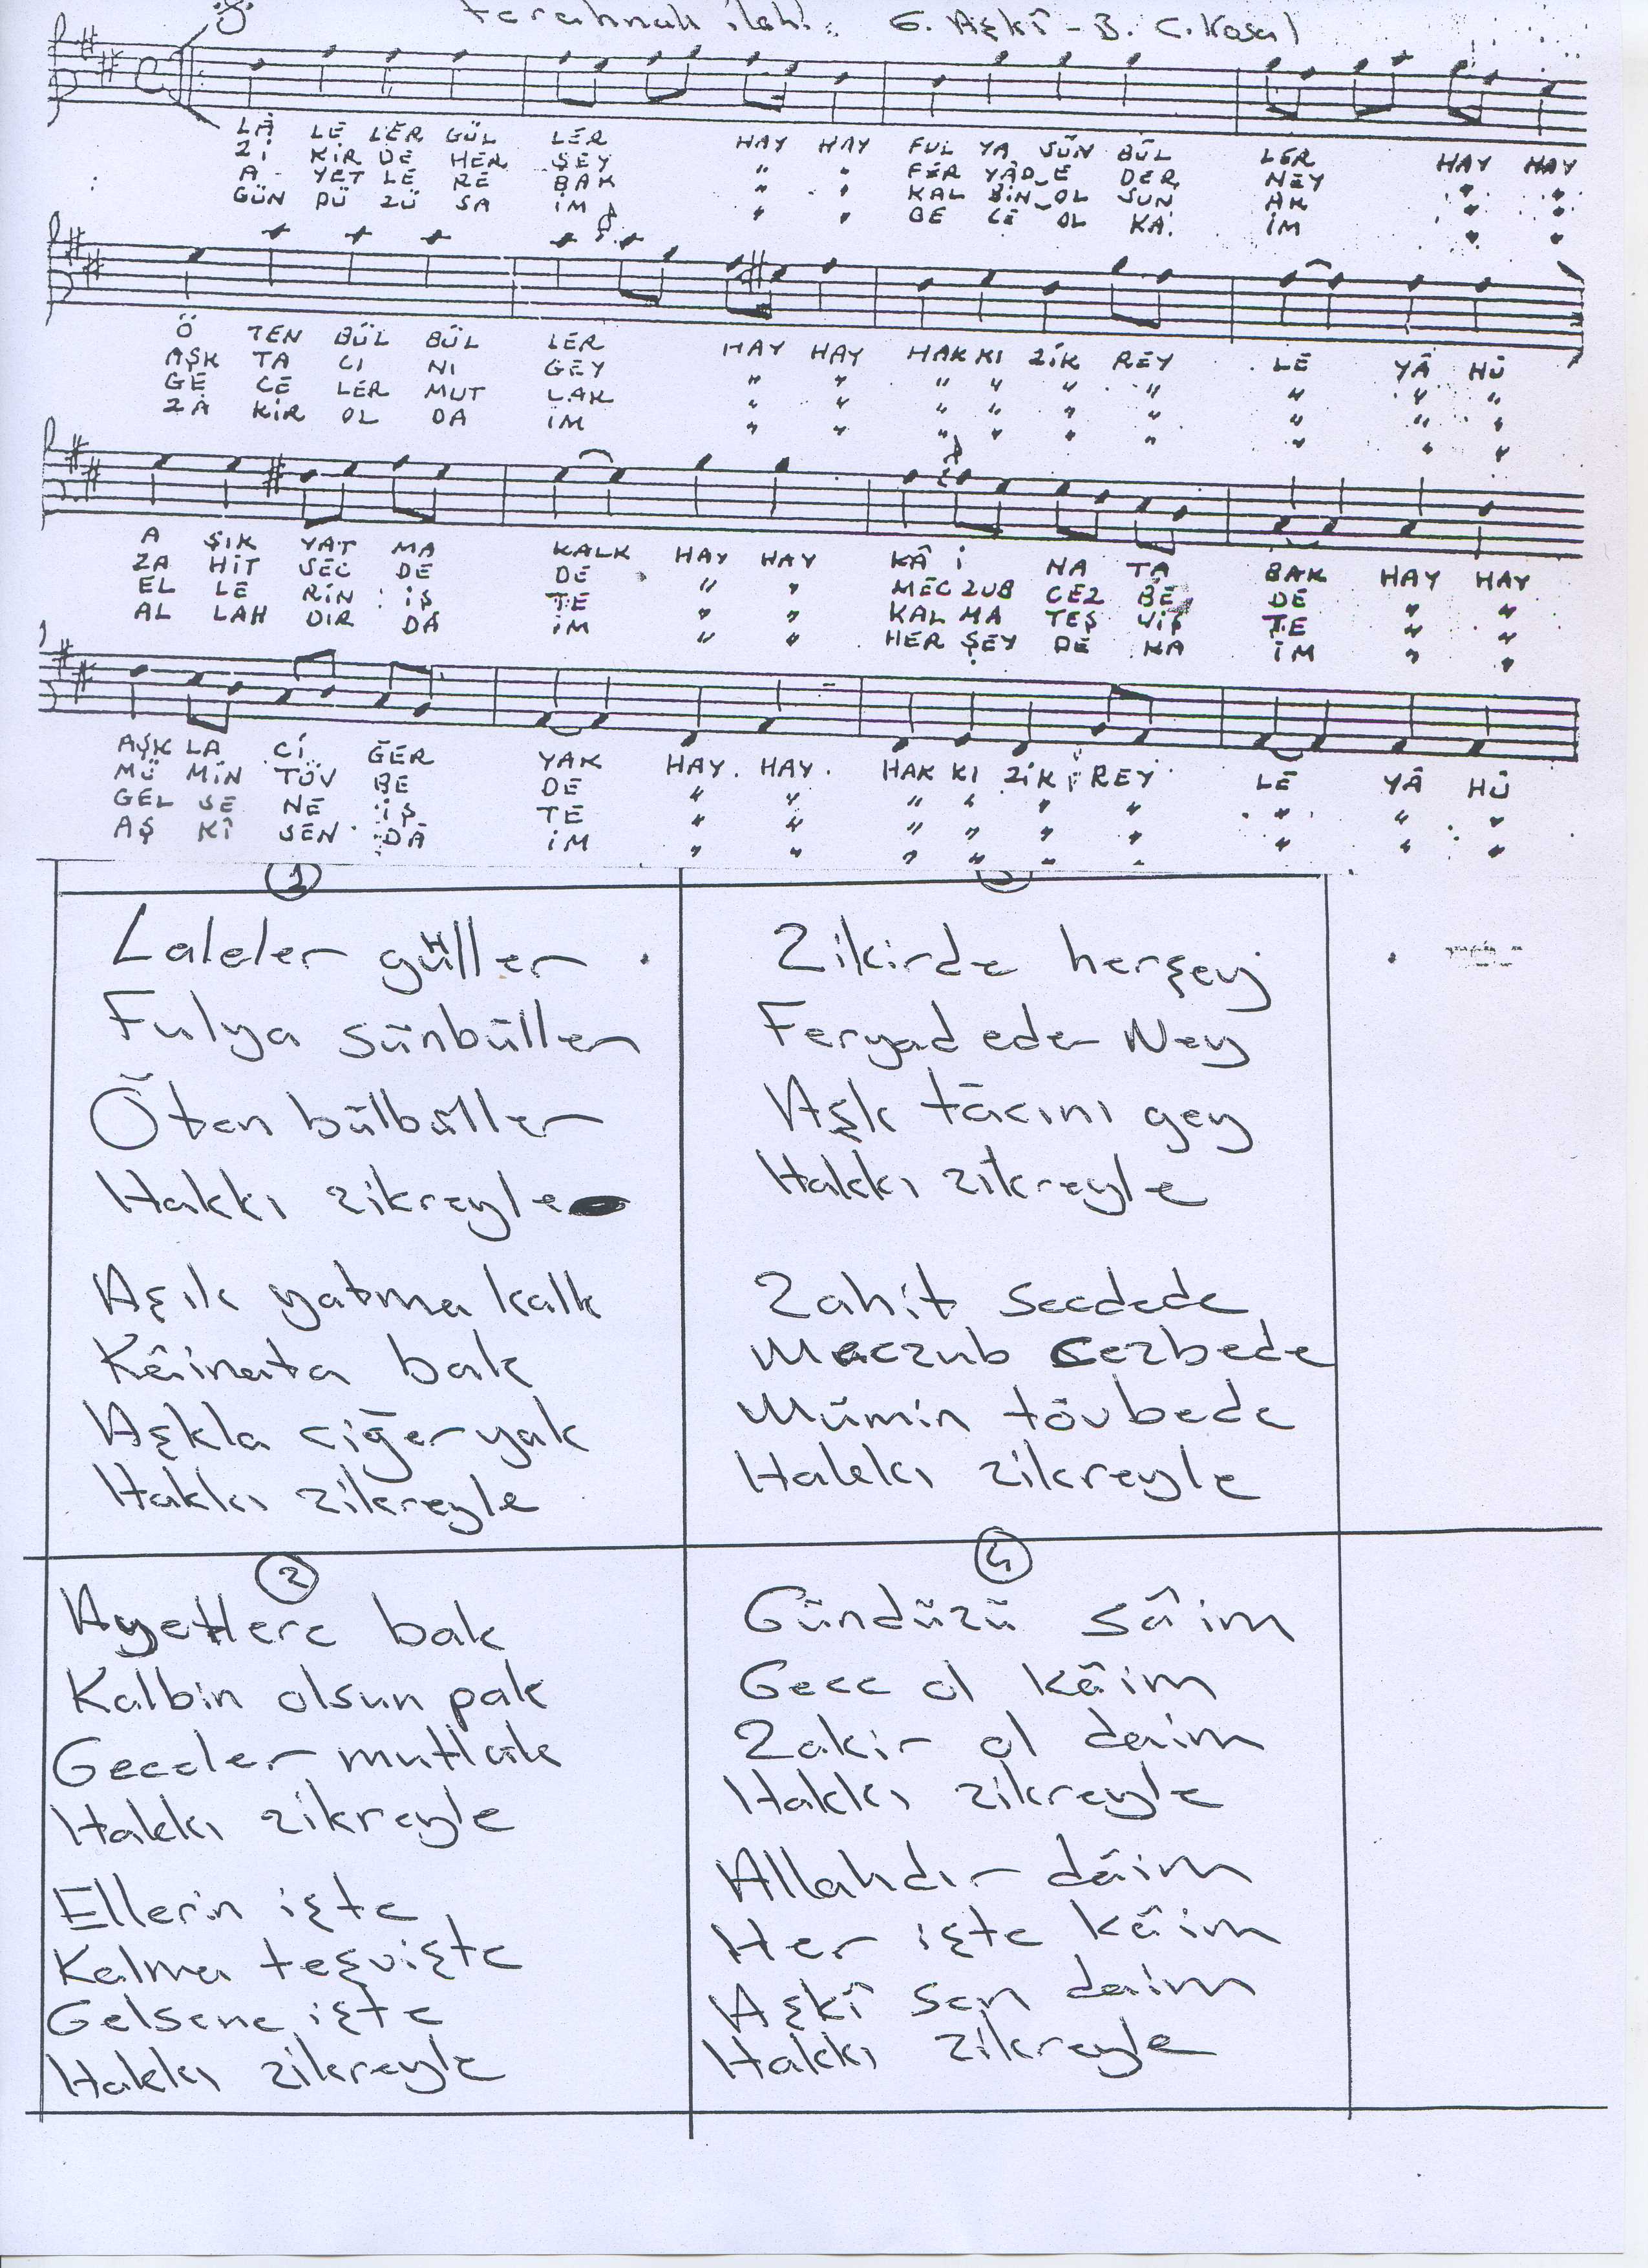 Ferahnak ilahi: G. Aşkî - B. C. Kosal
LÂ LE LER GÜL LER HAY HAY FUL YA SÜN BÜL LER HAY HAY
Zİ KİR DE HER ŞEY " " FER YÂD E DER NEY " "
A YET LE RE BAK " " KAL BİN OL SUN AK " "
GÜN DÜ ZÜ SA İM " " GE CE OL KA İM " "
Ö TEN BÜL BÜL LER HAY HAY HAK KI ZİK REY LE YÂ HÛ
AŞK TA CI NI GEY " " " " " " " " "
GE CE LER MUT LAK " " " " " " " " "
ZÂ KİR OL DA İM " " " " " " " " "
A ŞIK YAT MA KALK HAY HAY KÂ İ NA TA BAK HAY HAY
ZA HİT SEC DE DE " " MEC ZUB CEZ BE DE " "
EL LE RİN İŞ TE " " KAL MA TEŞ VİŞ TE " "
AL LAH DIR DA İM " " HER ŞEY DE KA İM " "
AŞK LA Cİ ĞER YAK HAY HAY HAK KI ZİK REY LE YÂ HÛ
MÜ MİN TÖV BE DE " " " " " " " " "
GEL SE NE İŞ TE " " " " " " " " "
AŞ KÎ SEN DÂ İM " " " " " " " " "
1
Laleler güller
Fulya sünbüller
Öten bülbüller
Hakkı zikreyle
Aşık yatma kalk
Kâinata bak
Aşkla ciğer yak
Hakkı zikreyle
Zikirde herşey
Feryad eder Ney
Aşk tâcını gey
Hakkı zikreyle
Zahit secdede
Meczub cezbede
Mümin tövbede
Hakkı zikreyle
2
Ayetlere bak
Kalbin olsun pak
Geceler mutlak
Hakkı zikreyle
Ellerin işte
Kalma teşvişte
Gelsene işte
Hakkı zikreyle
4
Gündüzü sâim
Gece ol kâim
Zakir ol daim
Hakkı zikreyle
Allahdır dâim
Her işte kâim
Aşkî sen daim
Hakkı zikreyle